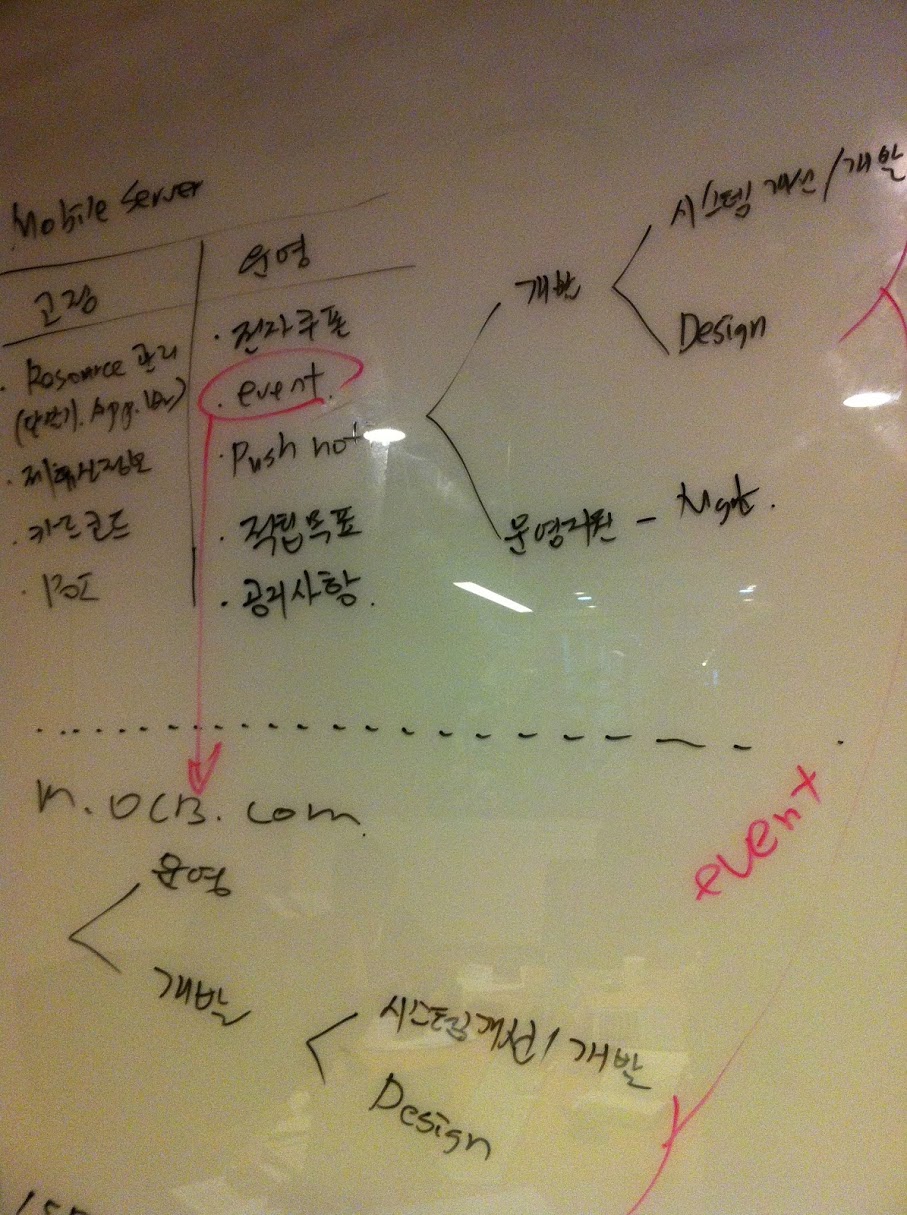 Mobile Server
고정
운영
· Resource 관리
(단말기. App. Ver)
· 제휴사정보
· 카드코드
· POI
· 전자쿠폰
· event.
· Push not
· 적립목표
· 공지사항.
개발
시스템 개선 / 개발
Design
운영지원 - Mgt.
m.OCB.com.
운영
개발
시스템개선 / 개발
Design
event